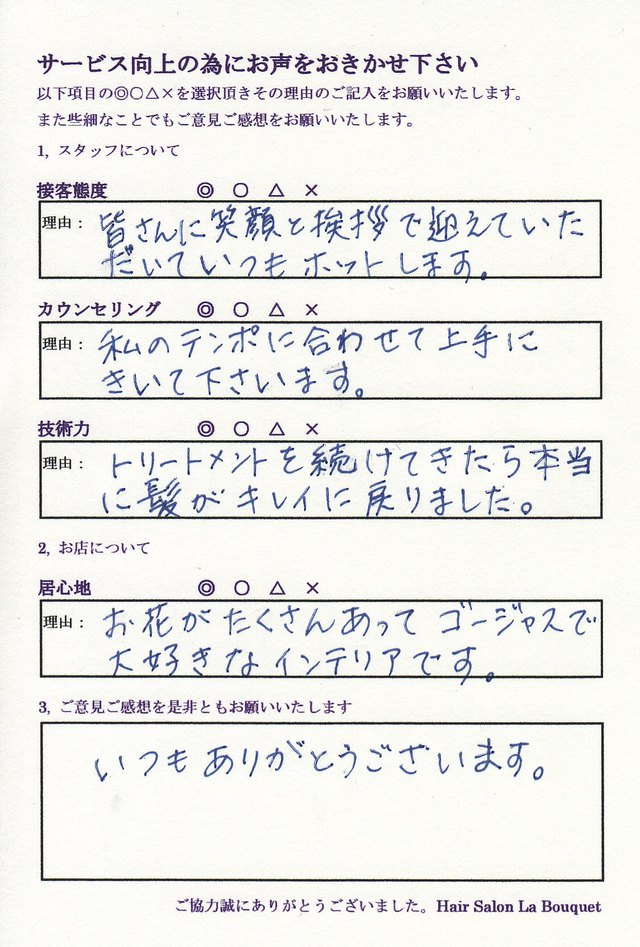 サービス向上の為にお声をおきかせ下さい
以下項目の◎○△×を選択頂きその理由のご記入をお願いいたします。
また些細なことでもご意見ご感想をお願いいたします。
1, スタッフについて
接客態度 ◎ ○ △ ×
理由： 皆さんに笑顔と挨拶で迎えていた
だいていつもホットします。
カウンセリング ◎ ○ △ ×
理由： 私のテンポに合わせて上手に
きいて下さいます。
技術力 ◎ ○ △ ×
理由： トリートメントを続けてきたら本当
に髪がキレイに戻りました。
2, お店について
居心地 ◎ ○ △ ×
理由： お花がたくさんあってゴージャスで
大好きなインテリアです。
3, ご意見ご感想を是非ともお願いいたします
いつもありがとうございます。
ご協力誠にありがとうございました。Hair Salon La Bouquet